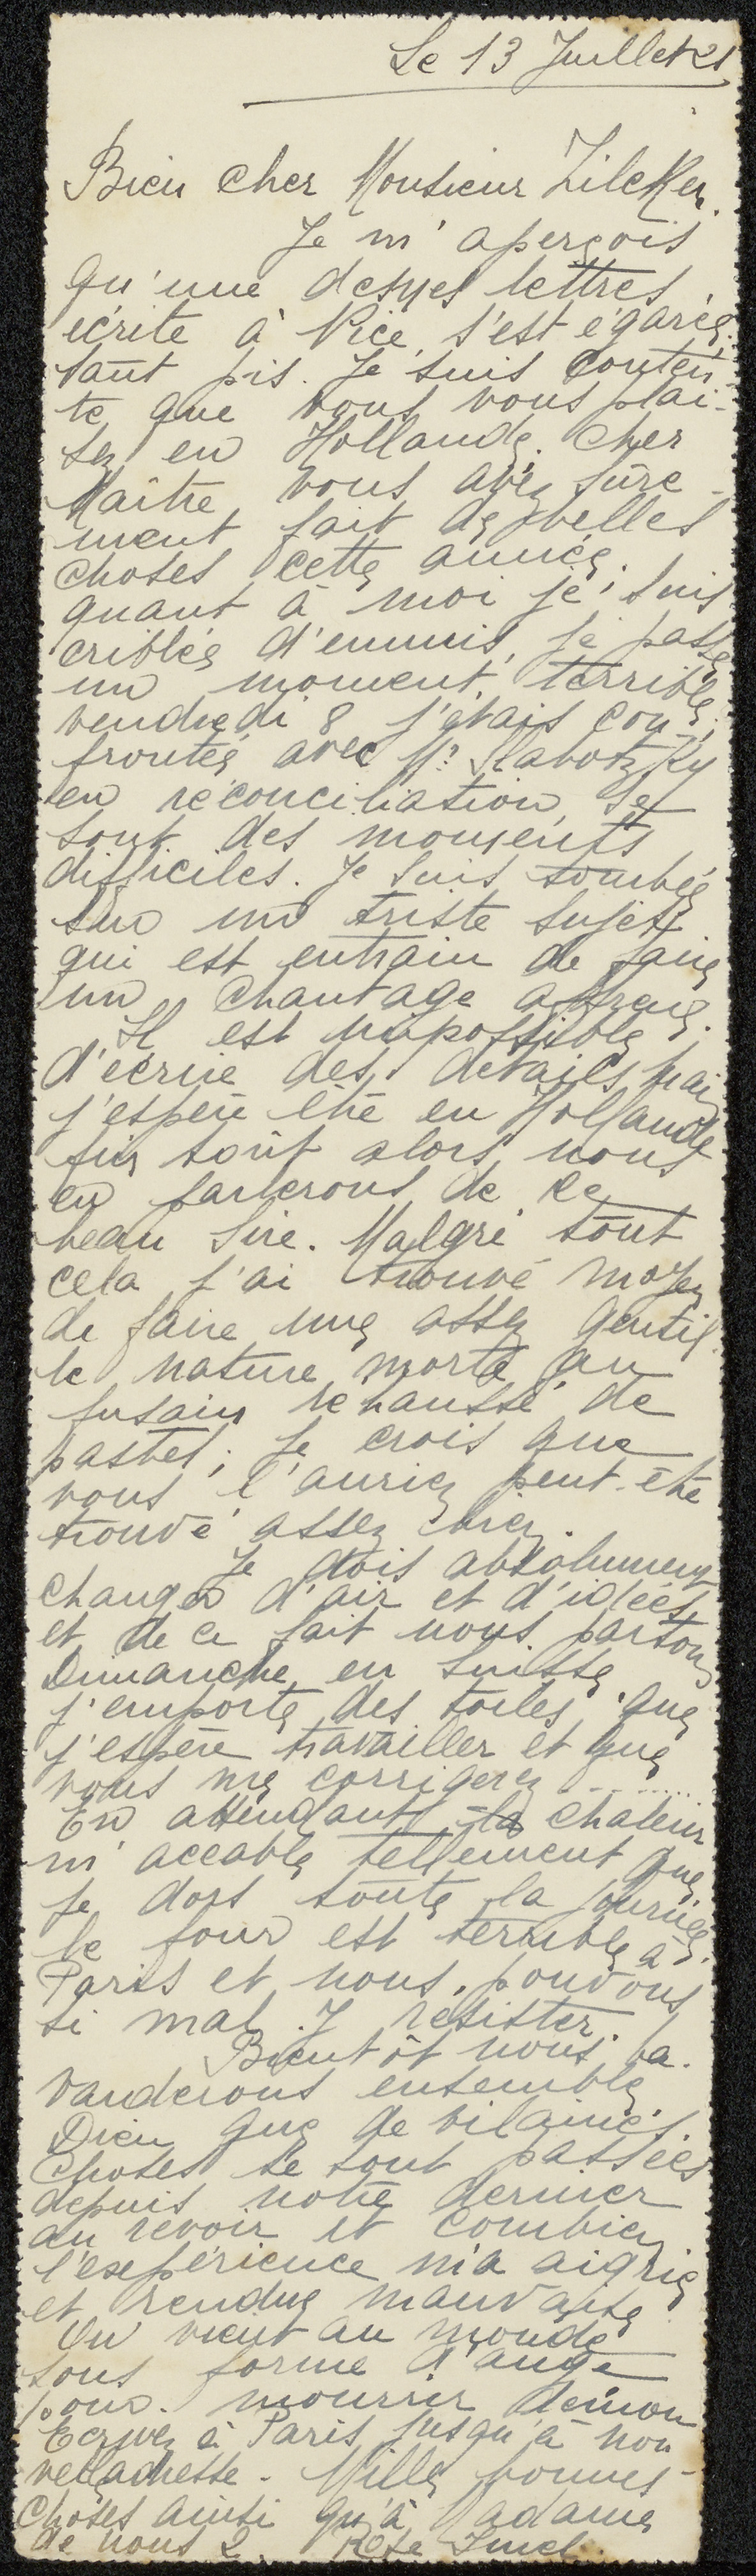 Le 13 Juillet 21
Bien cher Monsieur Zilcken.
Je m'aperçois
qu'une de mes lettres
écrite à Nice s'est égarée,
tant pis. Je suis conten-
te que vous vous plai-
sez en Hollande. Cher
Maître vous avez sûre-
ment fait de belles
choses cette année.
quant à moi je suis
criblée d'ennuis, je passe
un moment terrible,
vendredi 8 j'étais con-
frontée avec Mr Slabotzky
en réconciliation, se
sont des moments
difficiles. Je suis tombée
sur un triste sujet
qui est entrain de faire
un chantage affreux.
Il est impossible
d'écrire des détails mais
j'espère être en Hollande
fin août alors nous
en parlerons de ce
beau Sire. Malgré tout
cela j'ai trouvé moyen
de faire une assez gentil-
le nature morte au
fusain rehaussé de
pastel; je crois que
vous l'auriez peut-être
trouvé assez bien.
Je dois absolument
changer d'air et d'idées
et de ce fait nous partons
Dimanche en Suisse
j'emporte des toiles que
j'espère travailler et que
vous me corrigerez ........
En attendant la chaleur
m'accable tellement que
je dors toute la journée,
le four est terrible à
Paris et nous pouvons
si mal y résister.
Bientôt nous ba-
varderons ensemble
Dieu que de vilaines
choses se sont passées
depuis notre dernier
au revoir et combien
l'exepérience m'a aigrie
et rendue mauvaise
On vient au monde
sous forme d'ange
pour mourrir démon
Ecrivez à Paris jusqu'à nou
velle adresse. Mille bonnes
choses ainsi qu'à Madame
de nous 2.